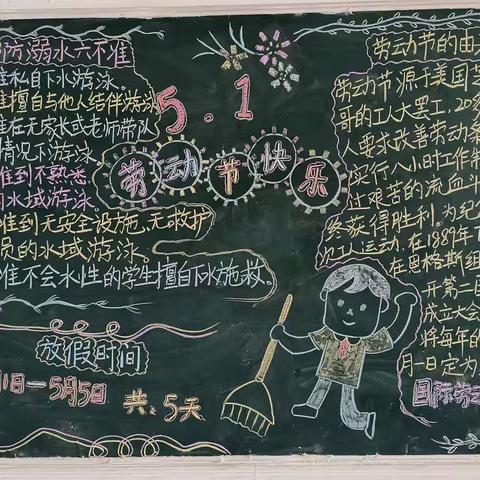 防溺水六不准
准私自下水游泳。
准擅自与他人结伴游泳
准在无家长或老师带队
情况下游泳。
准到不熟悉
的水域游泳。
准到无安全设施、无救护
员的水域游泳。
准不会水性的学生擅自下水施救。
放假时间
1日—5月5日
共:5天
5.1
劳动节快乐
劳动节的由
劳动节源于美国芝
哥的工人大罢工,20
人要求改善劳动条
实行八小时工作制
过艰苦的流血斗
终获得胜利。为纪
次工人运动,在1989年7
在恩格斯组
开第二
成立大会
将每年的
月一日定为
国际劳动